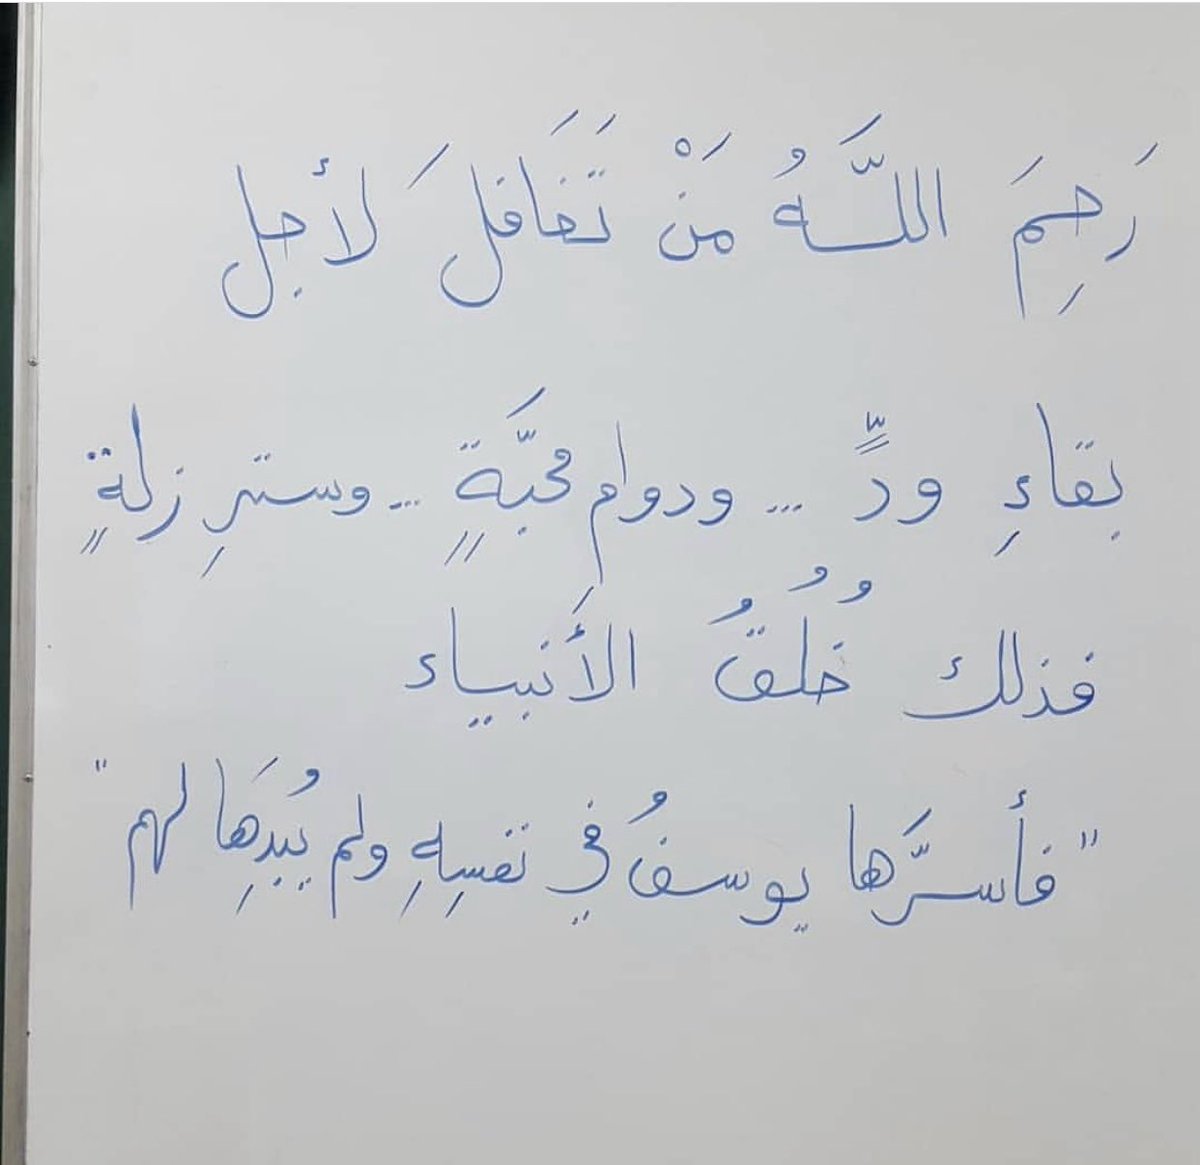 رَحِمَ اللَّهُ مَنْ تَغَافَلَ لأجل
بقاءِ ودٍّ ... ودوام محبَّةٍ ... وسترِ زلةٍ
فذلك خُلُقُ الأَنبياء
"فأسرَّها يوسفُ في نفسِهِ ولم يُبدِهَا لهم"